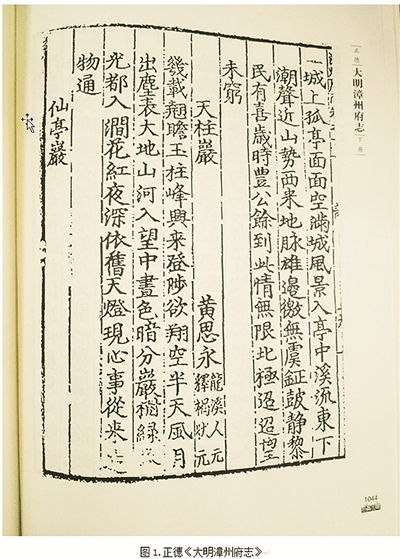 正德 大明漳州府志 下卷
一城上孤亭面面空滿城風景入亭中溪流東下
潮聲近山勢西来地脉雄邊徼無虞鉦鼓静黎
民有喜歲時豐公餘到此情無限北極迢迢望
未窮
天柱巖 黃思永 龍溪人元釋褐狀元
幾載翹瞻玉柱峰興来登陟欲翔空半天風月
出塵表大地山河入望中晝色暗分巖樹緑
光都入澗花紅夜深依舊天燈現心事從来
物通
仙亭巖
1044
图 1.正德《大明漳州府志》